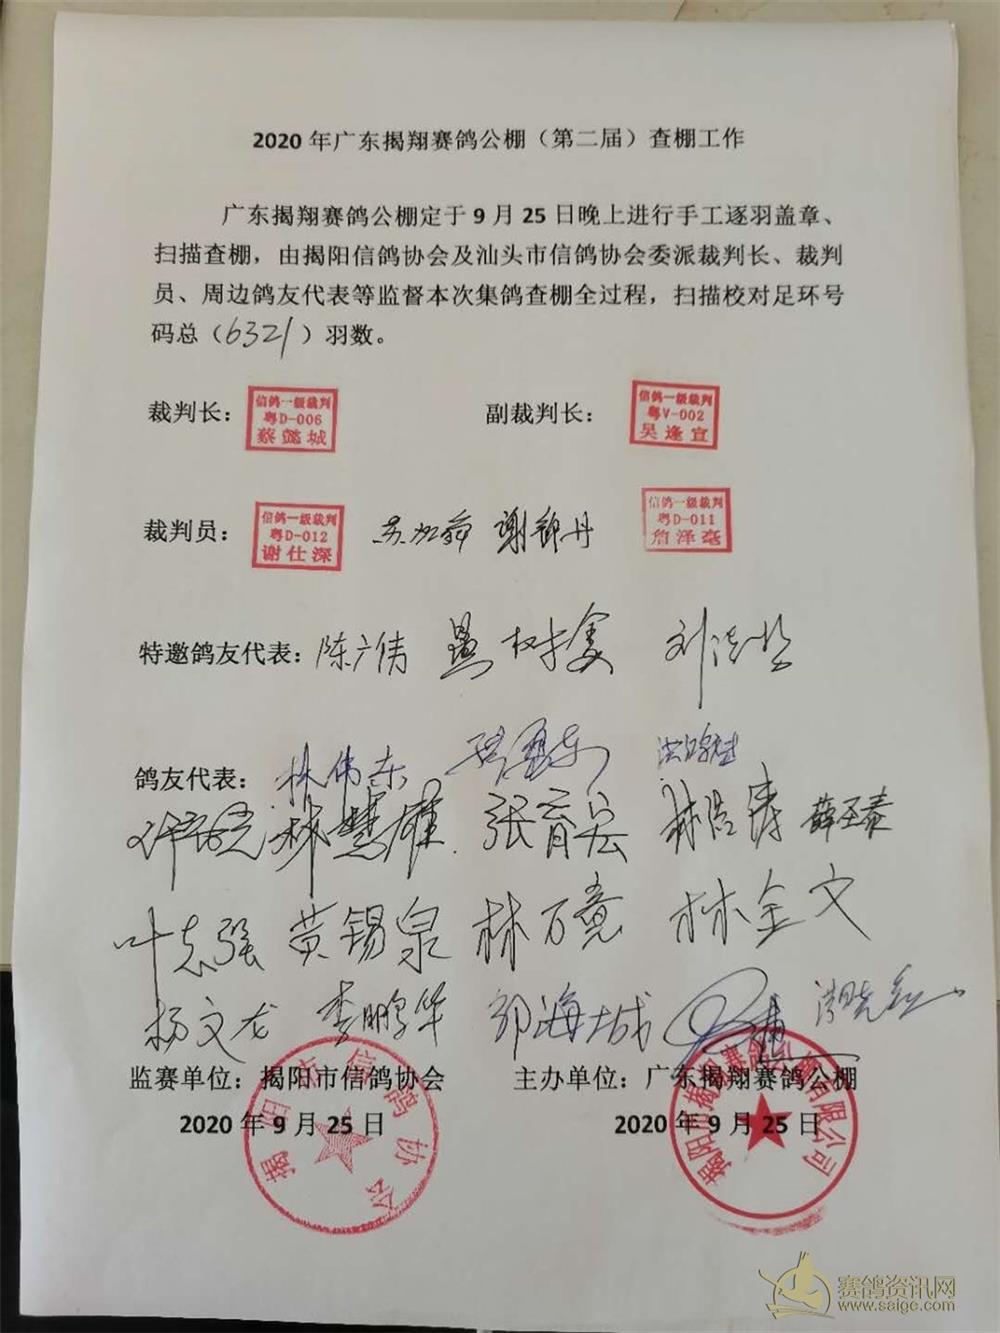 2020年广东揭翔赛鸽公棚（第二届）查棚工作
广东揭翔赛鸽公棚定于9月25日晚上进行手工逐羽盖章、
扫描查棚，由揭阳信鸽协会及汕头市信鸽协会委派裁判长、裁判
员、周边鸽友代表等监督本次集鸽查棚全过程，扫描校对足环号
码总（6321）羽数。
裁判长：
信鸽一级裁判
粤D-006
蔡懿城
副裁判长：
信鸽一级裁判
粤V-002
吴逢宣
裁判员：
信鸽一级裁判
粤D-012
谢仕深
谢锦丹
信鸽一级裁判
粤D-011
詹泽亳
特邀鸽友代表：陈广伟
鸽友代表：林伟东
林慧雄 张育宏 林浩涛 薛圣泰
叶志强 黄锡泉 林万意 林金文
杨文龙 李鹏华 郭海城
监赛单位：揭阳市信鸽协会 主办单位：广东揭翔赛鸽公棚
2020年9月25日 2020年9月25日
揭阳市信鸽协会
揭阳市揭翔赛鸽公棚有限公司
赛鸽资讯网
www.saige.com